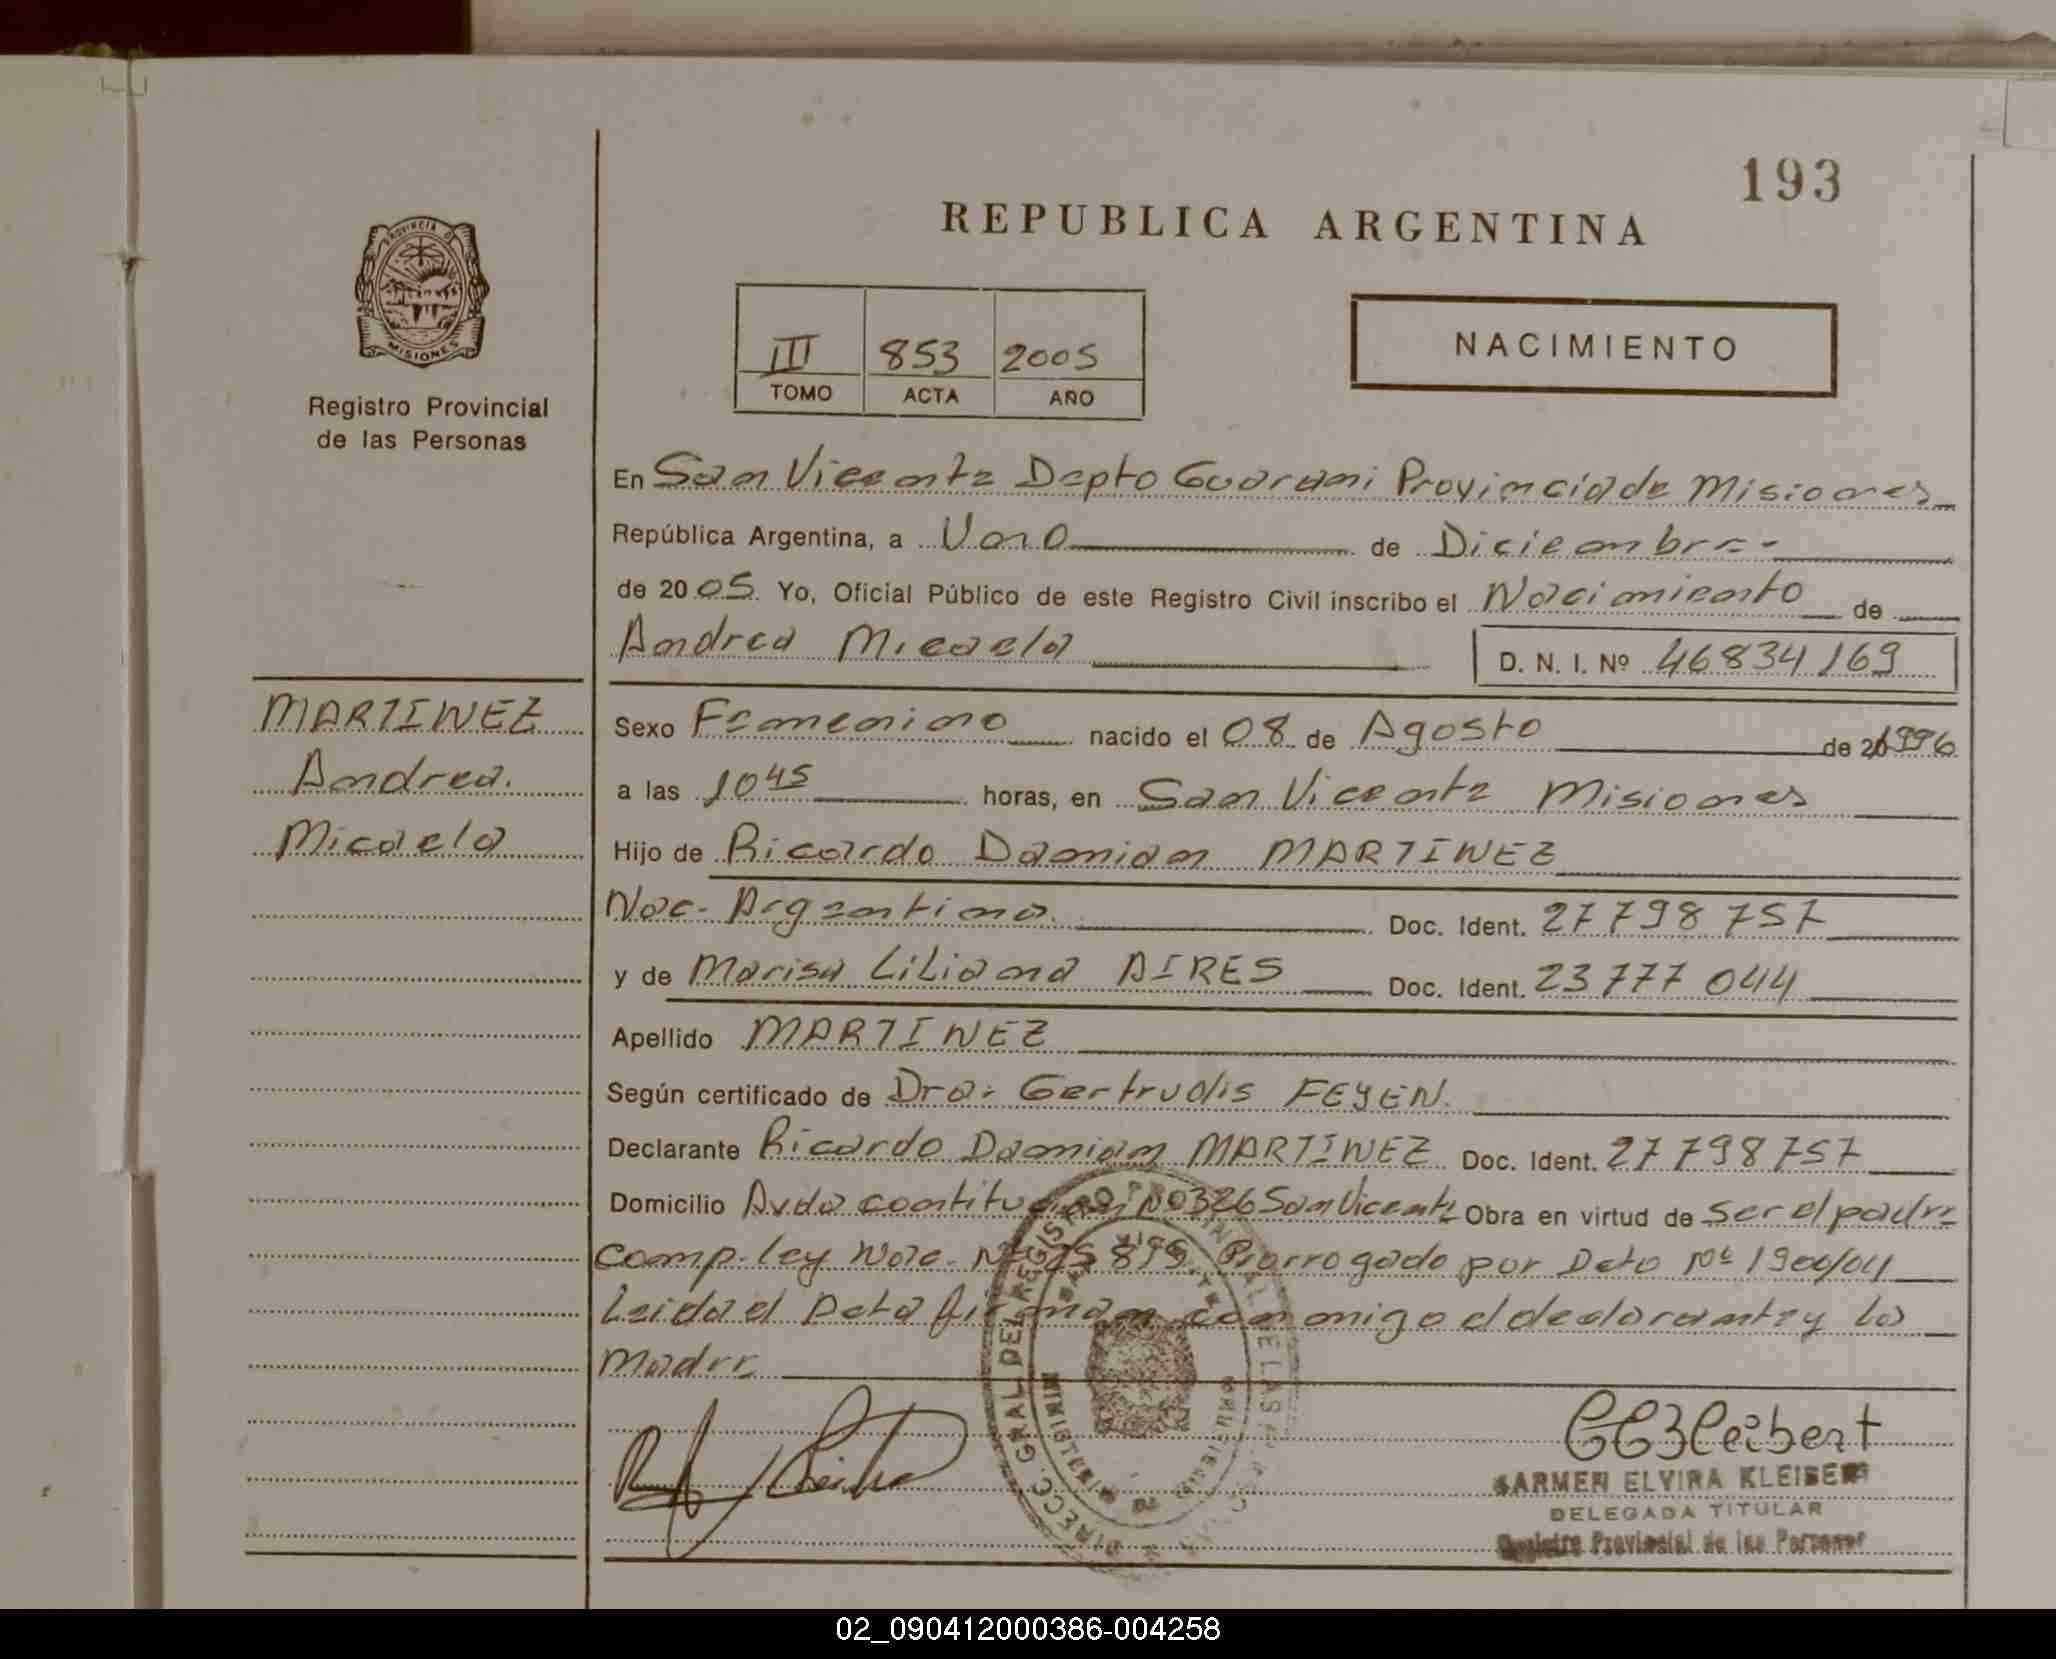 193
REPUBLICA ARGENTINA
PROVINCIA DE
MISIONES
Registro Provincial
de las Personas
III 853 2005
TOMO ACTA AÑO
NACIMIENTO
En San Vicente Depto Guarani Provincia de Misiones
República Argentina, a Uno de Diciembre.-
de 2005 Yo, Oficial Público de este Registro Civil inscribo el Nacimiento de
Andrea Micaela
D. N. I. Nº 46834169
MARTINEZ
Andrea.
Micaela
Sexo Femenino nacido el 08 de Agosto de 1996
a las 10 45 horas, en San Vicente Misiones
Hijo de Ricardo Damian MARTINEZ
Nac- Argentina. Doc. Ident. 27798757
y de Marisa Liliana AIRES Doc. Ident. 23777044
Apellido MARTINEZ
Según certificado de Dra: Gertrudis FEYEN.
Declarante Ricardo Damian MARTINEZ Doc. Ident. 27798757
Domicilio Avda Nº326 San Vicente Obra en virtud de Ser el padre
Comp. ley Nac. Prorrogado por Dcto Nº 1900/04
Leida el Acta firman conmigo el declarante y la
Madre
DIRECC. GRAL. DEL REGISTRO
CARMEN ELVIRA KLEIBERT
DELEGADA TITULAR
Registro Provincial de las Personas
02_090412000386-004258